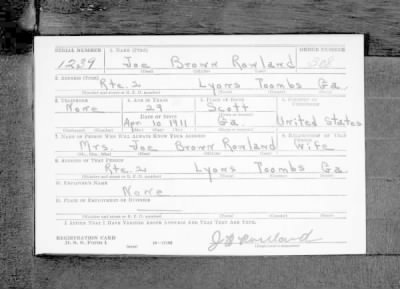 SERIAL NUMBER 1. NAME (Print) ORDER NUMBER
1239 Joe Brown Rowland
(First) (Middle) (Last)
2. ADDRESS (Print)
Rte. 2 Lyons Toombs Ga.
(Number and street or R. F. D. number) (Town) (County) (State)
3. TELEPHONE 4. AGE IN YEARS 5. PLACE OF BIRTH 6. COUNTRY OF CITIZENSHIP
None 29 Scott
DATE OF BIRTH
Apr 10 1911 Ga. United States
(Exchange) (Number) (Mo.) (Day) (Yr.) (State or country)
7. NAME OF PERSON WHO WILL ALWAYS KNOW YOUR ADDRESS 8. RELATIONSHIP OF THAT PERSON
Mrs. Joe Brown Rowland Wife
(Mr., Mrs., Miss) (First) (Middle) (Last)
9. ADDRESS OF THAT PERSON
Rte. 2 Lyons Toombs Ga.
(Number and street or R. F. D. number) (Town) (County) (State)
10. EMPLOYER'S NAME
None
11. PLACE OF EMPLOYMENT OR BUSINESS
(Number and street or R. F. D. number) (Town) (County) (State)
I AFFIRM THAT I HAVE VERIFIED ABOVE ANSWERS AND THAT THEY ARE TRUE.
REGISTRATION CARD
D. S. S. Form 1 J B Rowland
(Registrant's signature)